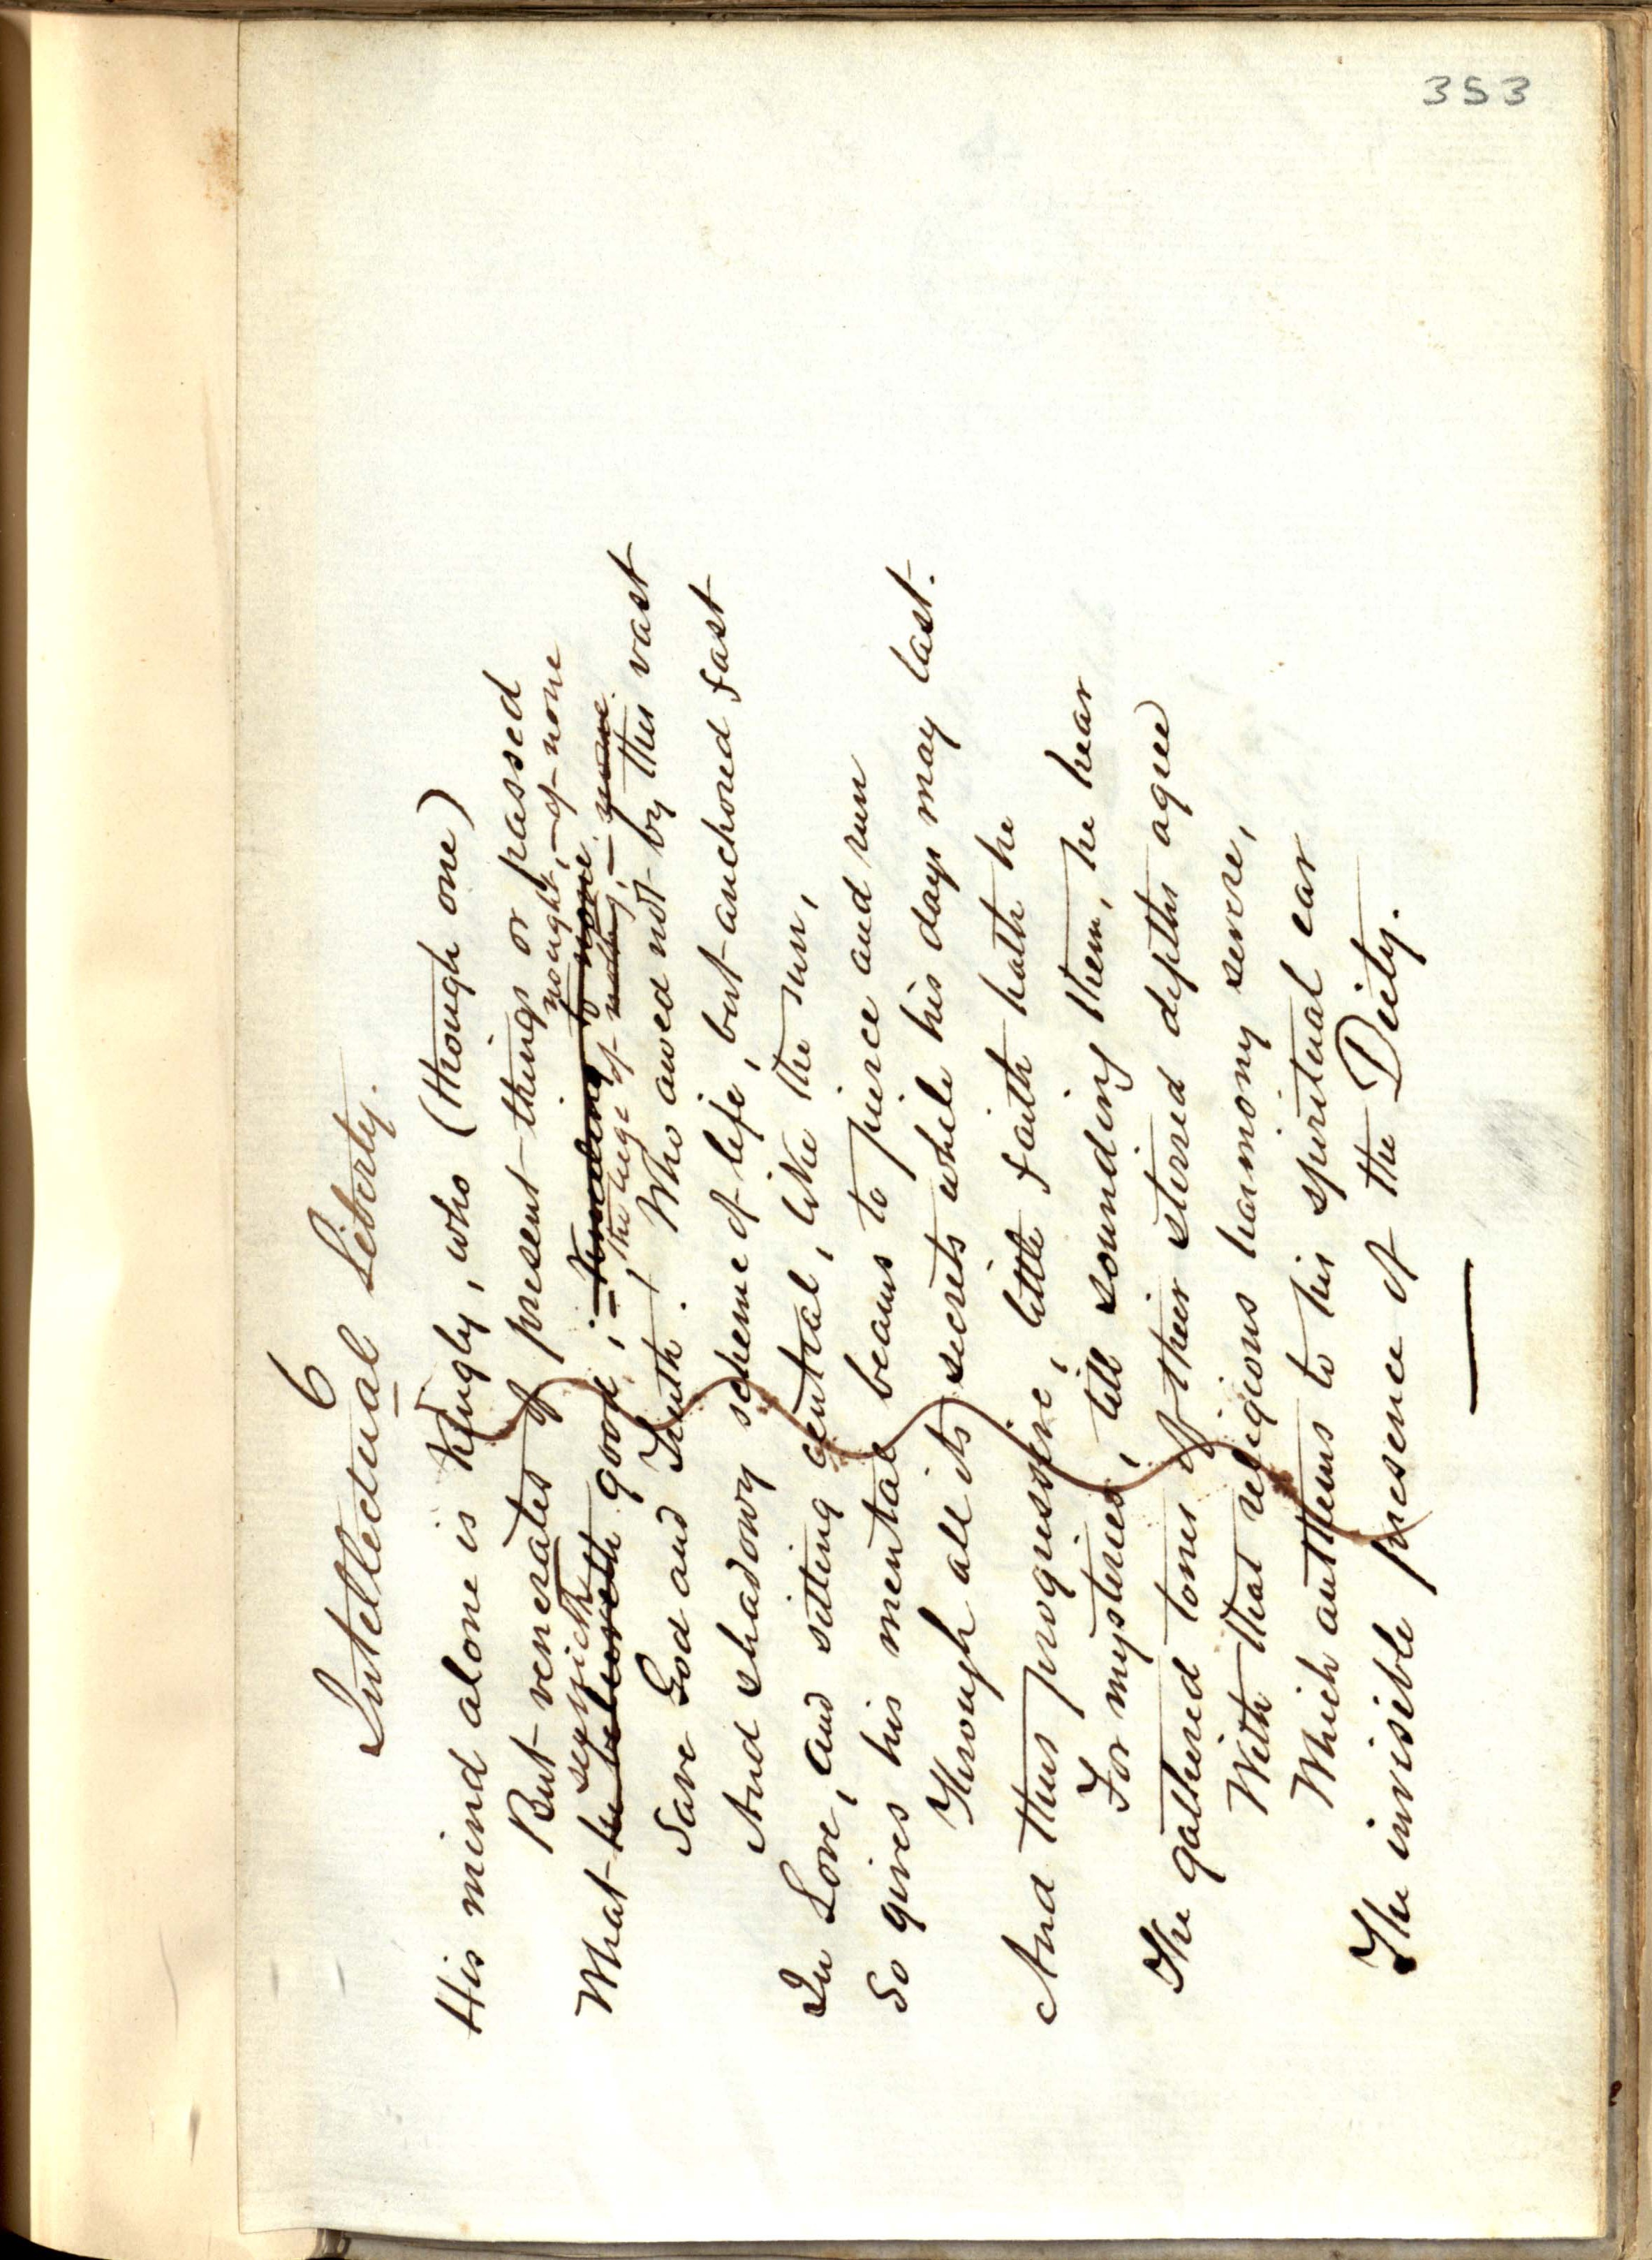 353
6
Intellectual Liberty.
His mind alone is Kingly, who (though one)
But venerates of present things or passed
nought, — of none
What he believeth good; — Kneeling to none.
seemeth
the liege of nothing, — none.
Save God and Truth. / Who awed not by this vast
And shadowy scheme of life, but anchored fast
In Love, and sitting central, like the sun,
So gives his mental beams to pierce and run
Through all its secrets while his days may last.
And thus progressive, little faith hath he
For mysteries, till sounding them, he hear
The gathered tones of their stirred depths agree
With that religious harmony severe,
Which anthems to his spiritual ear
The invisible presence of the Deity.